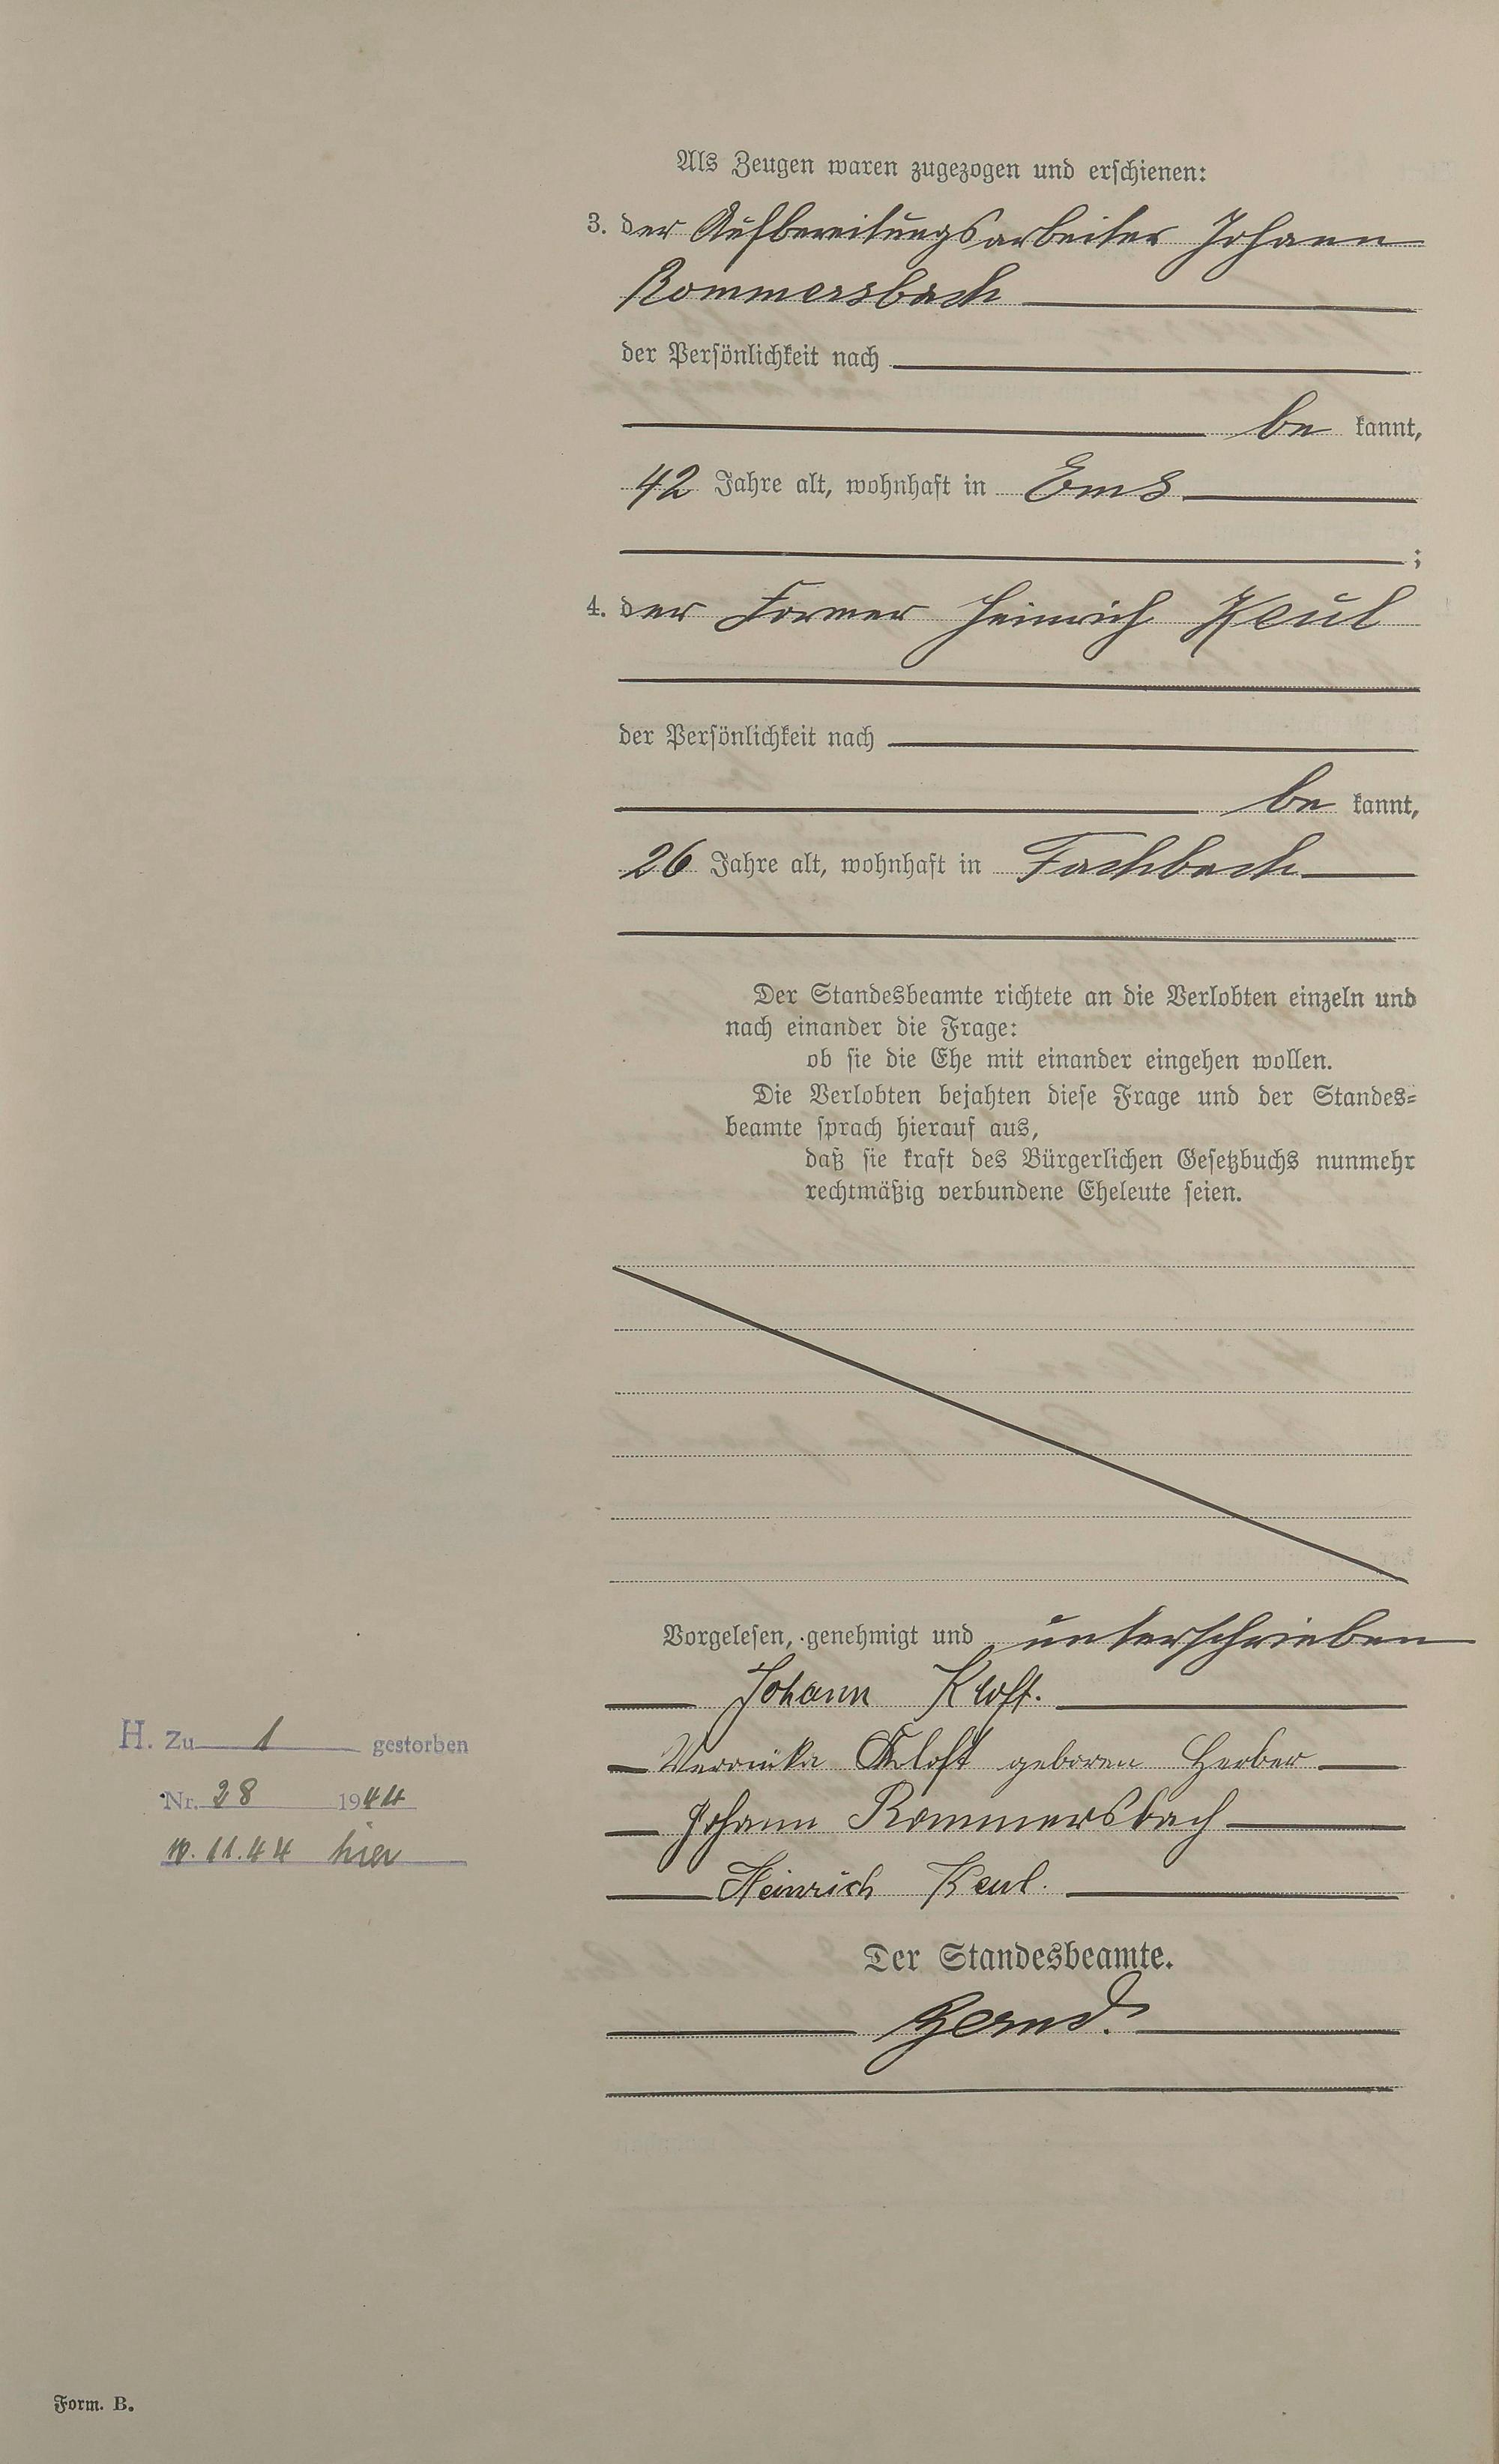 Als Zeugen waren zugezogen und erschienen:
3. der Aufbereitungsarbeiter Johann
Rommersbach
der Persönlichkeit nach
be kannt,
42 Jahre alt, wohnhaft in Ems
;
4. der Former Heinrich Keul
der Persönlichkeit nach
be kannt,
26 Jahre alt, wohnhaft in Fachbach
Der Standesbeamte richtete an die Verlobten einzeln und
nach einander die Frage:
ob sie die Ehe mit einander eingehen wollen.
Die Verlobten bejahten diese Frage und der Standes-
beamte sprach hierauf aus,
daß sie kraft des Bürgerlichen Gesetzbuchs nunmehr
rechtmäßig verbundene Eheleute seien.
Vorgelesen, genehmigt und unterschrieben
Johann Kloft.
Veronika Kloft geboren Herber
Johann Rommersbach
Heinrich Keul.
Der Standesbeamte.
H. Zu 1 gestorben
Nr. 28 1944
11.44 hier
Form. B.